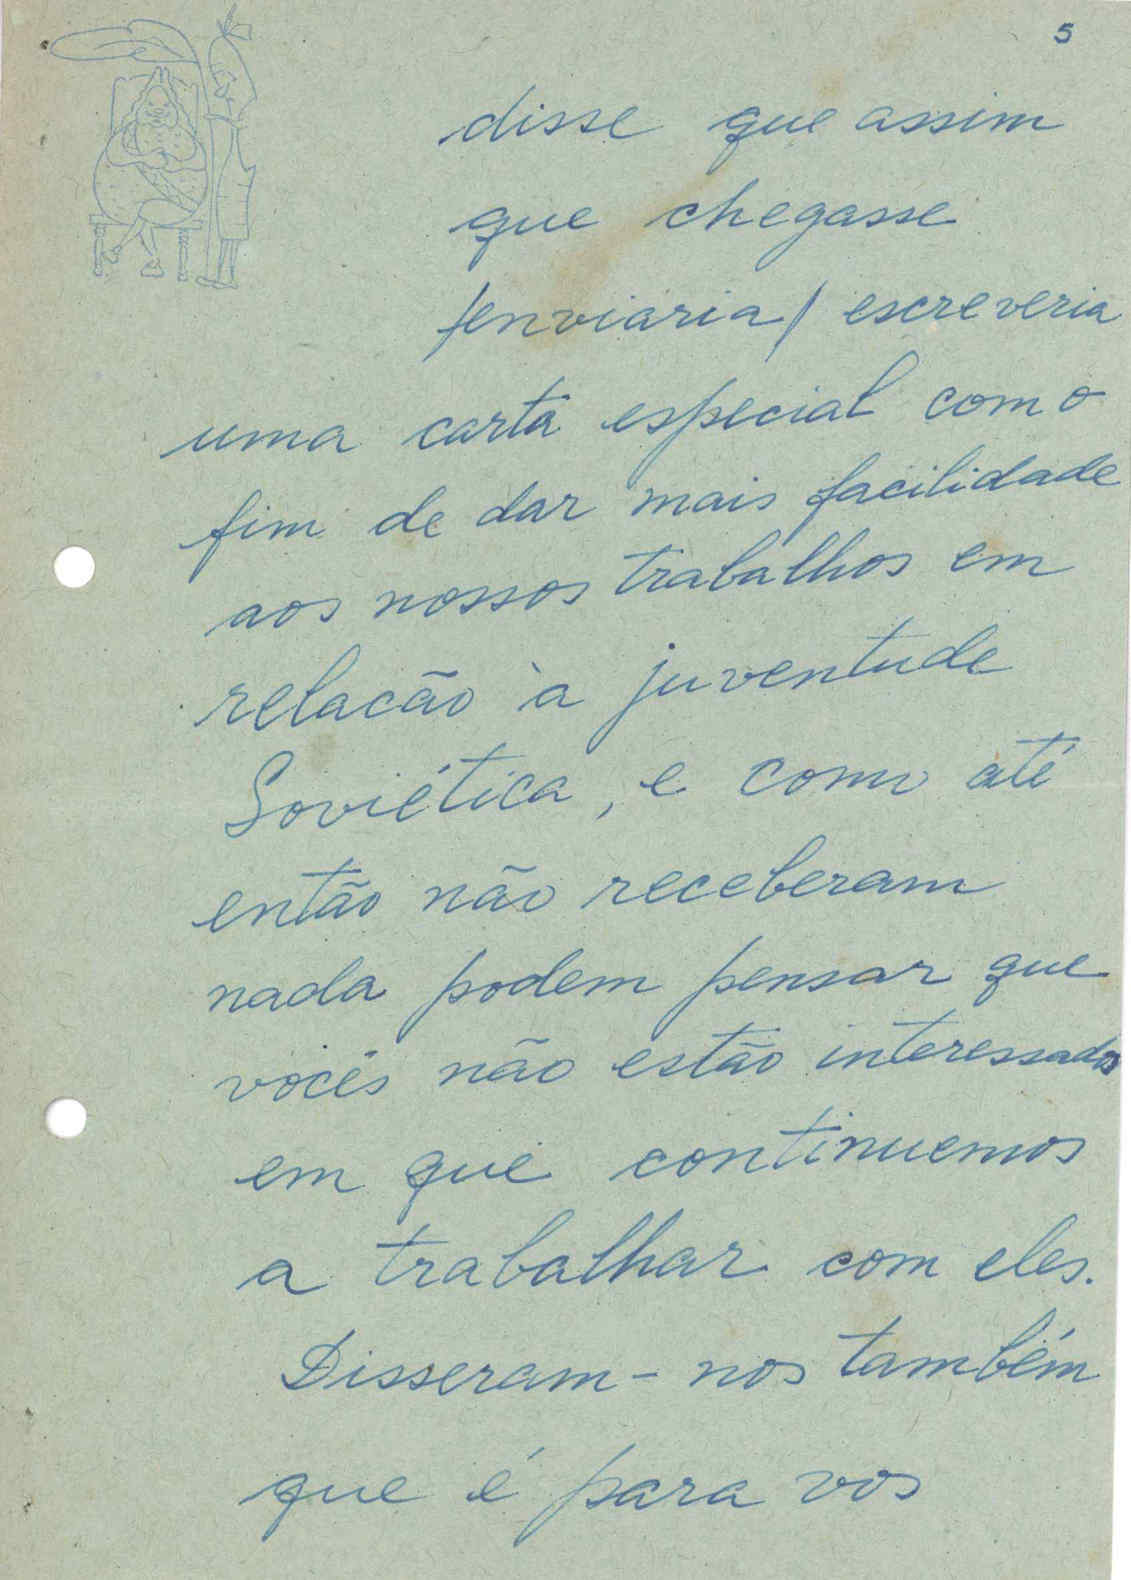 5
disse que assim
que chegasse
/enviaria/ escreveria
uma carta especial com o
fim de dar mais facilidade
aos nossos trabalhos em
relacão à juventude
Soviética, e como até
então não receberam
nada podem pensar que
vocês não estão interessados
em que continuemos
a trabalhar com eles.
Disseram-nos também
que é para vos